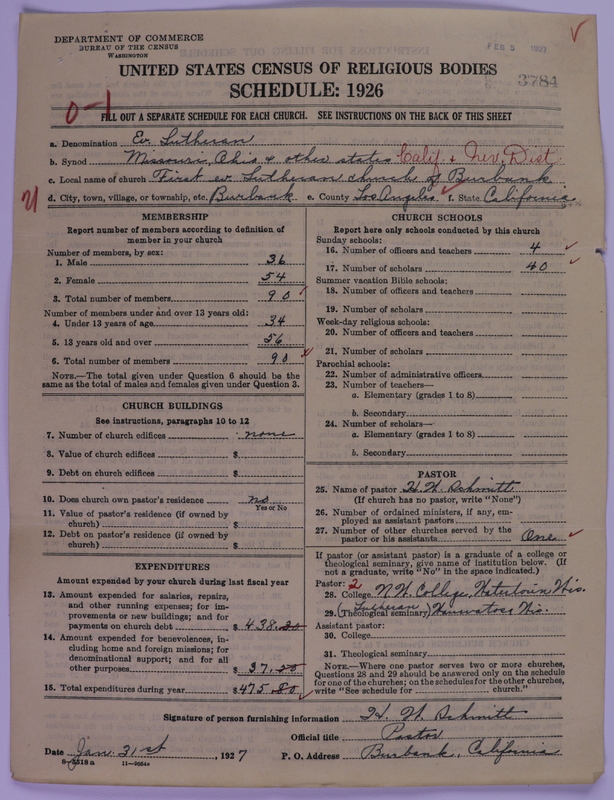 DEPARTMENT OF COMMERCE
BUREAU OF THE CENSUS
WASHINGTON
FEB 5 1927
UNITED STATES CENSUS OF RELIGIOUS BODIES
3784
SCHEDULE: 1926
0-1
FILL OUT A SEPARATE SCHEDULE FOR EACH CHURCH. SEE INSTRUCTIONS ON THE BACK OF THIS SHEET
a. Denomination Ev. Lutheran
b. Synod Missouri, Ohio & other states Calif. & Nev. Dist.
c. Local name of church First ev. Lutheran church of Burbank
d. City, town, village, or township, etc. Burbank e. County Los Angeles f. State California
MEMBERSHIP
Report number of members according to definition of member in your church
Number of members, by sex:
1. Male 36
2. Female 54
3. Total number of members 90
Number of members under and over 13 years old:
4. Under 13 years of age 34
5. 13 years old and over 56
6. Total number of members 90
NOTE.—The total given under Question 6 should be
same as the total of males and females given under Question 3.
CHURCH BUILDINGS
See instructions, paragraphs 10 to 12
7. Number of church edifices none
8. Value of church edifices $
9. Debt on church edifices $
10. Does church own pastor's residence no
Yes or No
11. Value of pastor's residence (if owned by
church) $
12. Debt on pastor's residence (if owned by
church) $
EXPENDITURES
Amount expended by your church during last fiscal year
13. Amount expended for salaries, repairs,
and other running expenses; for im-
provements or new buildings; and for
payments on church debt $ 438.
14. Amount expended for benevolences, in-
cluding home and foreign missions; for
denominational support; and for all
other purposes $ 37.
15. Total expenditures during year $ 475.80
CHURCH SCHOOLS
Report here only schools conducted by this church
Sunday schools:
16. Number of officers and teachers 4
17. Number of scholars 40
Summer vacation Bible schools:
18. Number of officers and teachers
19. Number of scholars
Week-day religious schools:
20. Number of officers and teachers
21. Number of scholars
Parochial schools:
22. Number of administrative officers
23. Number of teachers—
a. Elementary (grades 1 to 8)
b. Secondary
24. Number of scholars—
a. Elementary (grades 1 to 8)
b. Secondary
PASTOR
25. Name of pastor H. W. Schmitt
(If church has no pastor, write "None")
26. Number of ordained ministers, if any, em-
ployed as assistant pastors
27. Number of other churches served by the
pastor or his assistants One
If pastor (or assistant pastor) is a graduate of a college or
theological seminary, give name of institution below. (If
not a graduate, write "No" in the space indicated.)
Pastor: 2
28. College N.W. College, Watertown Wis.
29. (Theological seminary) Lutheran Wauwatosa Wis.
Assistant pastor:
30. College
31. Theological seminary
NOTE.—Where one pastor serves two or more churches,
Questions 28 and 29 should be answered only on the schedule
for one of the churches; on the schedules for the other churches,
write "See schedule for church."
Signature of person furnishing information H. W. Schmitt
Official title Pastor
Date Jan. 31st, 1927 P. O. Address Burbank, California
8-5318a 11-9654